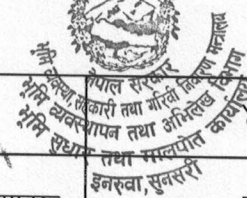 नेपाल सरकार
भूमि व्यवस्था, सहकारी तथा गरिवी निवारण मन्त्रालय
भूमि व्यवस्थापन तथा अभिलेख विभाग
भूमि सुधार तथा मालपोत कार्यालय
इनरुवा, सुनसरी